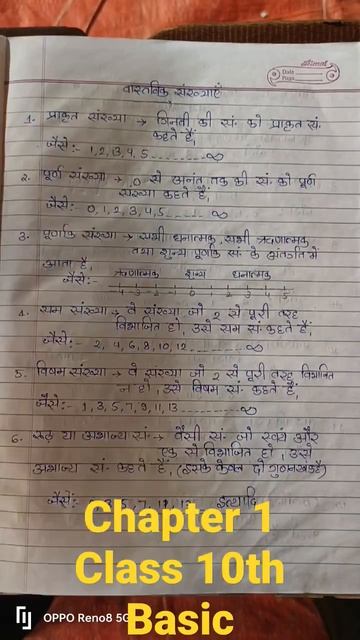 Date
Page
वास्तविक संख्याएं
1. प्राकृत संख्या → गिनती की सं. को प्राकृत सं.
कहते हैं,
जैसे:- 1, 2, 3, 4, 5 ............ ∞
2. पूर्ण संख्या → 0 से अनंत तक की सं. को पूर्ण
संख्या कहते हैं,
जैसे:- 0, 1, 2, 3, 4, 5 ....... ∞
3. पूर्णांक संख्या → सभी धनात्मक, सभी ऋणात्मक
तथा शून्य पूर्णांक सं. के अंतर्गत में
आता है,
जैसे:- ऋणात्मक शून्य धनात्मक
-4 -3 -2 -1 0 1 2 3 4 5
4. सम संख्या → वे संख्या जो 2 से पूरी तरह
विभाजित हो, उसे सम सं. कहते हैं,
जैसे:- 2, 4, 6, 8, 10, 12 ............ ∞
5. विषम संख्या → वे संख्या जो 2 से पूरी तरह विभाजित
न हो, उसे विषम सं. कहते हैं,
जैसे:- 1, 3, 5, 7, 9, 11, 13 ............ ∞
6. रूढ़ या अभाज्य सं. → वैसी सं. जो स्वयं और
एक से विभाजित हो, उसे
अभाज्य सं. कहते हैं, (इसके केवल दो गुणनखंड है)
जैसे:- 2, 3, 5, 7, 11, 13 इत्यादि
Chapter 1
Class 10th
Basic
OPPO Reno8 5G